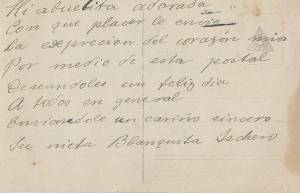 Mi abuelita adorada
Con que placer le envio
La exprecion del corazón mio
Por medio de esta postal
Deseandoles un feliz dia
A todos en general
Enviandole un cariño sincero
Su nieta Bbanquita